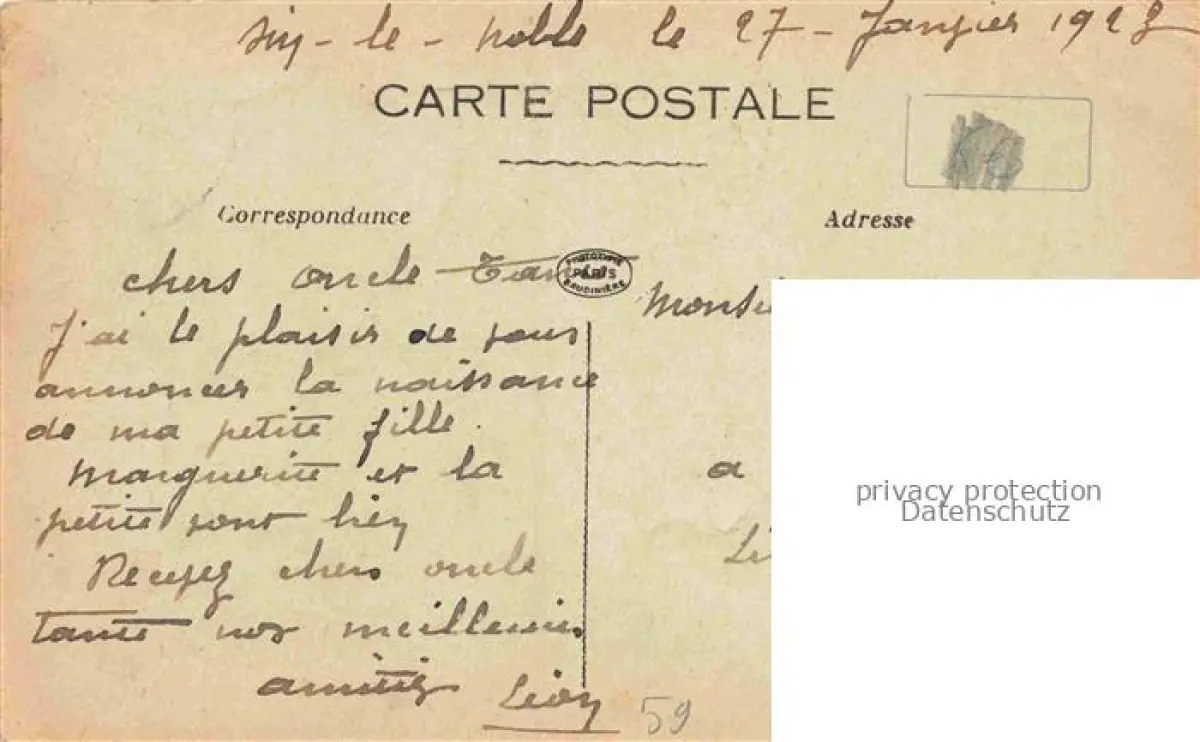 sin-le-noble le 27-Janvier 1923
CARTE POSTALE
Correspondance
Adresse
chers oncle Tante
J'ai le plaisir de vous
annoncer la naissance
de ma petite fille.
Marguerite et la
petite sont bien
Recevez chers oncle
tante nos meilleures
amitiés
Léon
PHOTOTYPIE
PARIS
BAUDINIÈRE
Monsi
a
Li
59
privacy protection
Datenschutz